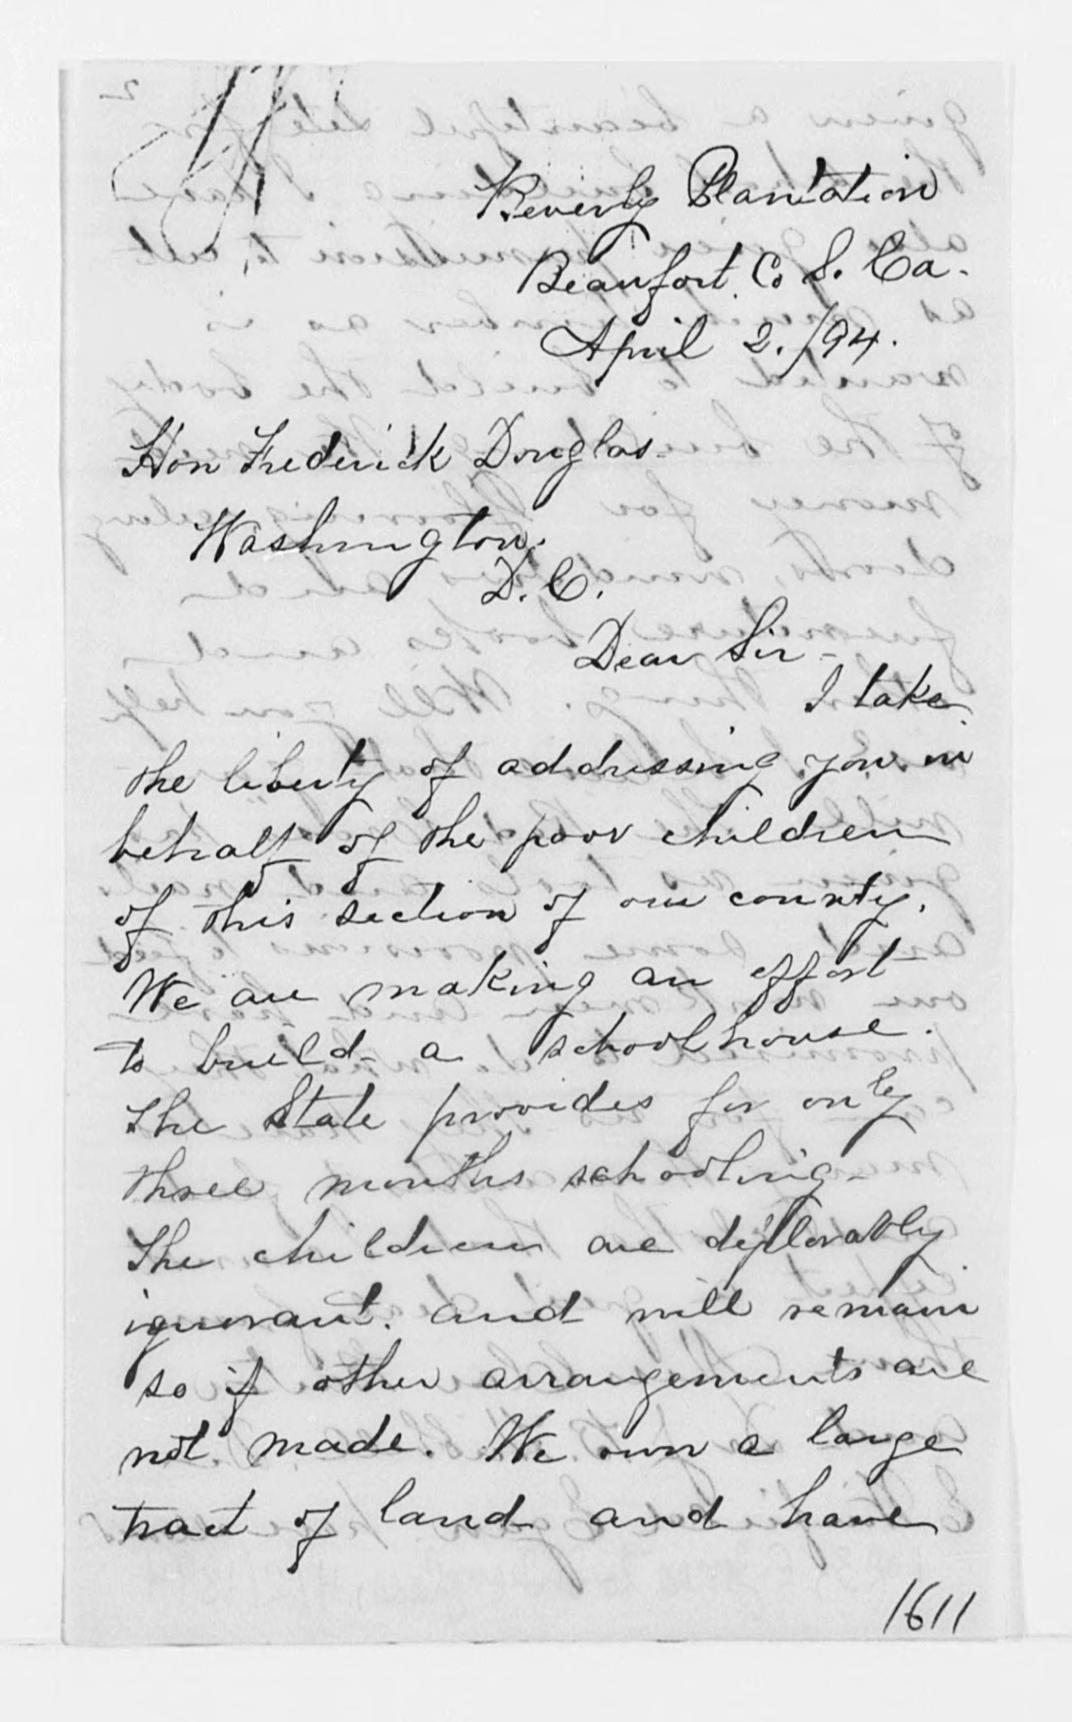 Beverly Plantation
Beaufort. Co S. Ca.
April 2./94.
Hon Frederick Douglas.
Washington.
D. C.
Dear Sir -
I take
the liberty of addressing you in
behalf of the poor children
of this section of our county.
We are making an effort
to build a schoolhouse.
The State provides for only
three months schooling -
The children are deplorably
ignorant. and will remain
so if other arrangements are
not made. We own a large
tract of land and have
1611